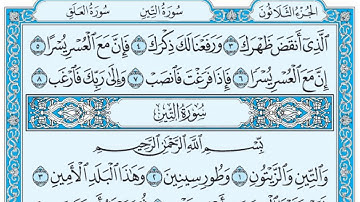 الجزء الثلاثون سورة التين سورة العلق
ٱلَّذِىٓ أَنقَضَ ظَهۡرَكَ ٣ وَرَفَعۡنَا لَكَ ذِكۡرَكَ ٤ فَإِنَّ مَعَ ٱلۡعُسۡرِ يُسۡرًا ٥
إِنَّ مَعَ ٱلۡعُسۡرِ يُسۡرٗا ٦ فَإِذَا فَرَغۡتَ فَٱنصَبۡ ٧ وَإِلَىٰ رَبِّكَ فَٱرۡغَب ٨
سورة التين
بِسۡمِ ٱللَّهِ ٱلرَّحۡمَٰنِ ٱلرَّحِيمِ
وَٱلتِّينِ وَٱلزَّيۡتُونِ ١ وَطُورِ سِينِينَ ٢ وَهَٰذَا ٱلۡبَلَدِ ٱلۡأَمِينِ ٣